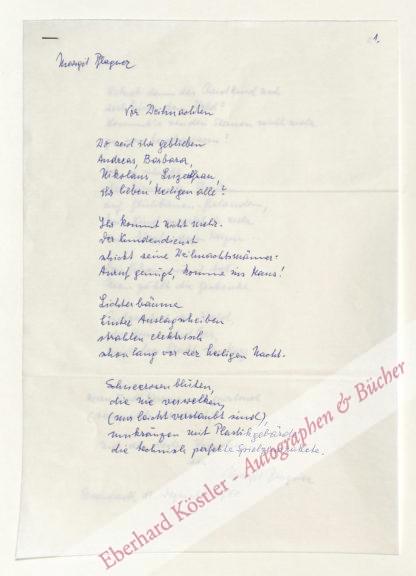 1.
Margit Pflagner
Vor Weihnachten
Wo seid ihr geblieben
Andreas, Barbara,
Nikolaus, Luzelfrau,
ihr lieben Heiligen alle?
Ihr kommt nicht mehr.
Der Kundendienst
schickt seine Weihnachtsmänner:
Anruf genügt, komme ins Haus!
Lichterbäume
hinter Auslagscheiben
strahlen elektrisch
schon lang vor der heiligen Nacht.
Schneerosenblüten,
die nie verwelken,
(nur leicht verstaubt sind),
umkränzen mit Plastikgebärde
die technisch perfekte
Eberhard Köstler - Autographen & Bücher